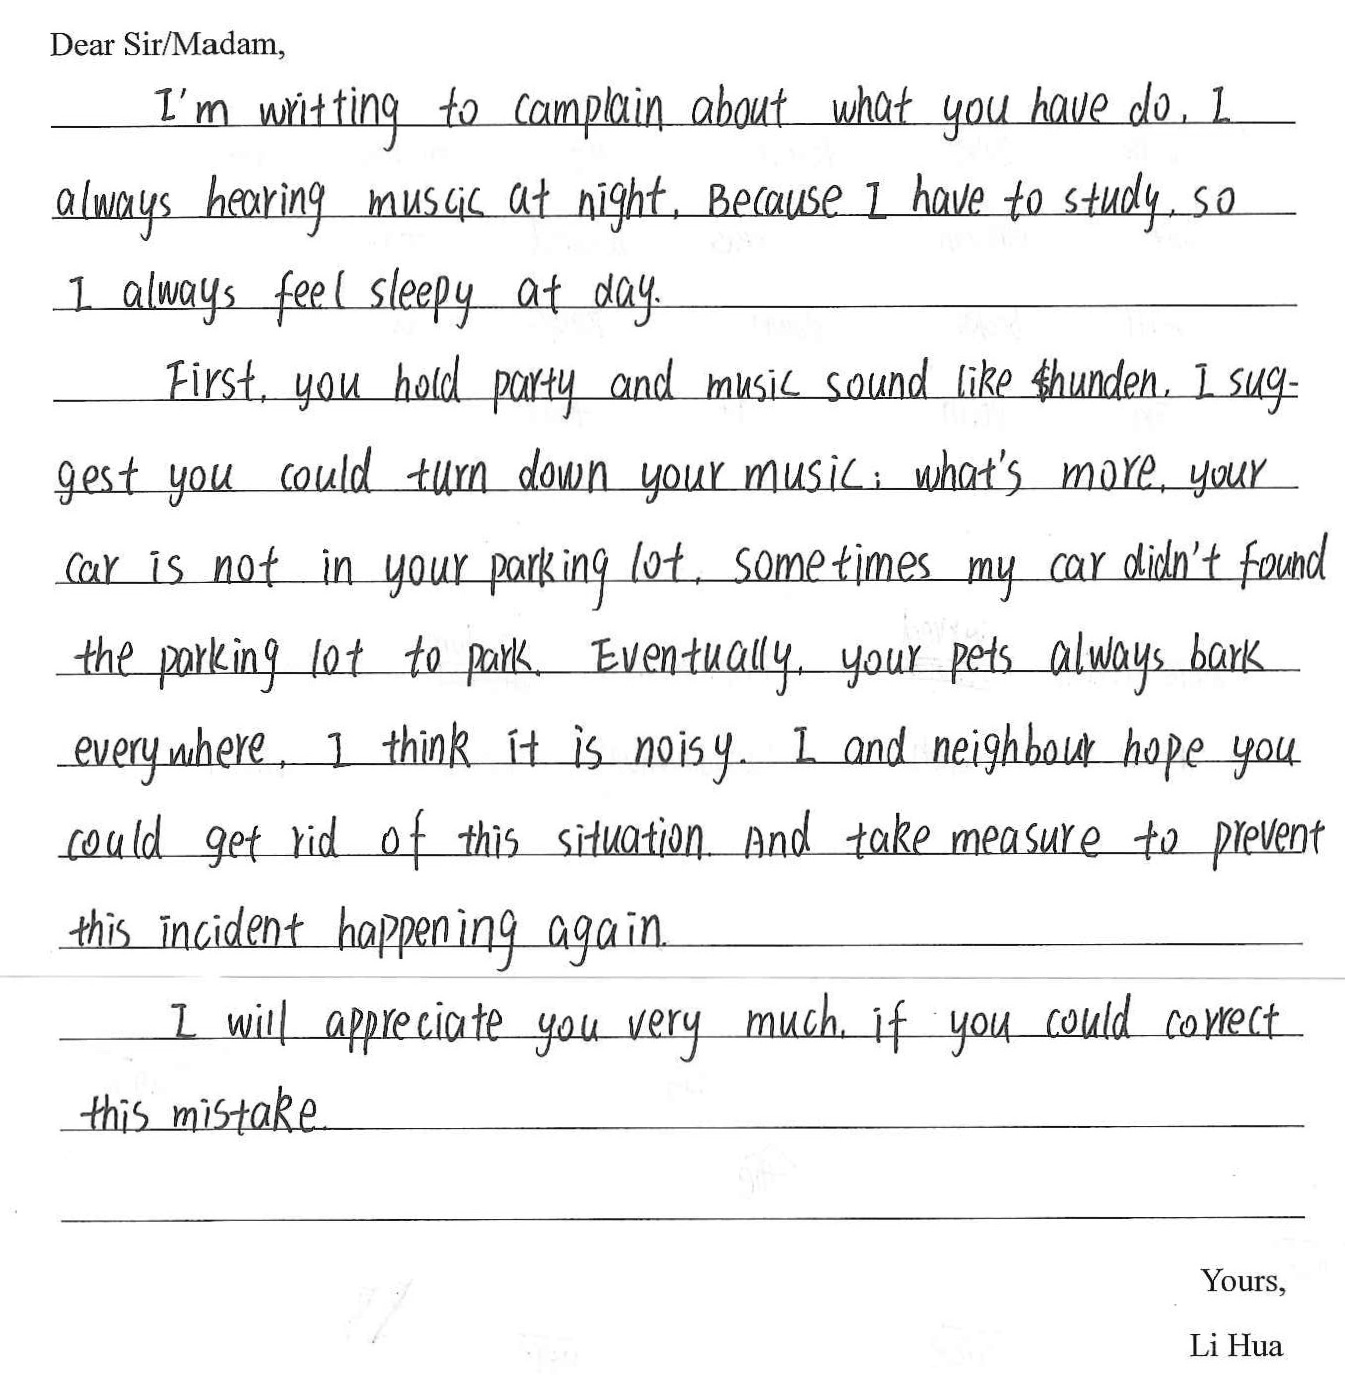 Dear Sir/Madam,
I'm writting to camplain about what you have do. I
always hearing muscic at night. Because I have to study, so
I always feel sleepy at day.
First, you hold party and music sound like thunden. I sug-
gest you could turn down your music; what's more, your
car is not in your parking lot, sometimes my car didn't found
the parking lot to park. Eventually, your pets always bark
everywhere, I think it is noisy. I and neighbour hope you
could get rid of this situation. And take measure to prevent
this incident happening again.
I will appreciate you very much, if you could correct
this mistake.
Yours,
Li Hua